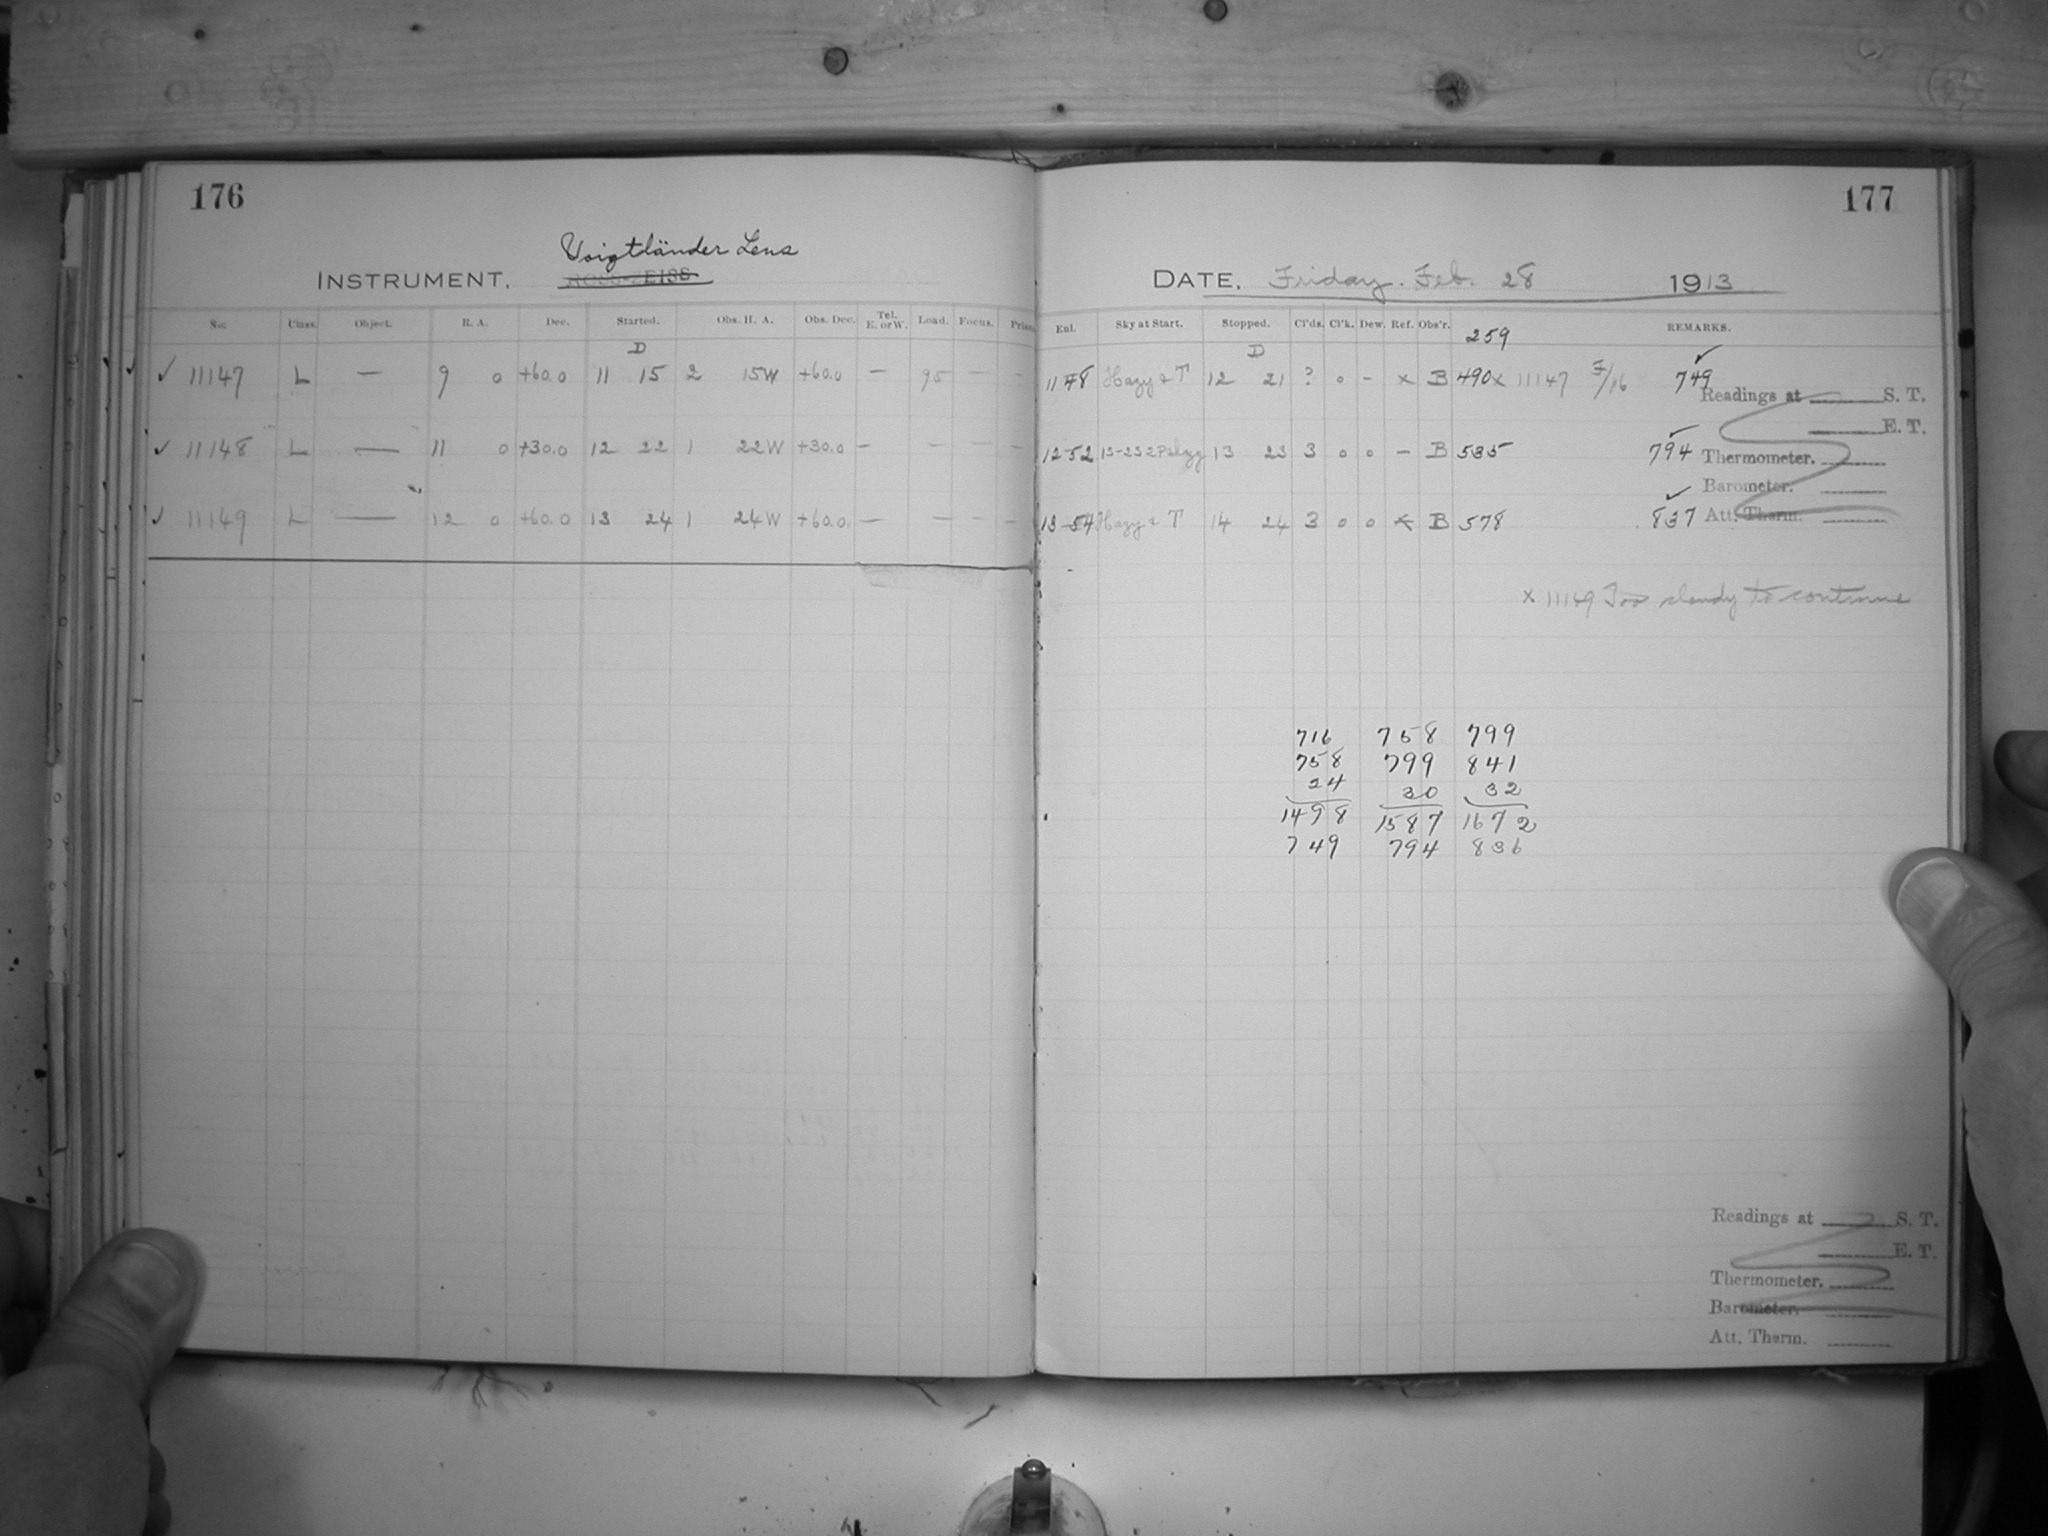 176
Voigtländer Lens
INSTRUMENT.
No. Class. Object. R. A. Dec. Started. Obs. H. A. Obs. Dec. Tel. E. or W. Load. Focus.
D
✓ 11147 L — 9 0 +60.0 11 15 2 15W +60.0 — 95 — —
✓ 11148 L — 11 0 +30.0 12 22 1 22W +30.0 — — — —
✓ 11149 L — 12 0 +60.0 13 24 1 24W +60.0 — — — —
177
DATE. Friday. Feb. 28 1913
Exl. Sky at Start. Stopped. Cl'ds. Cl'k. Dew. Ref. Obs'r. 259 REMARKS.
D
1148 Hazy & T 12 21 ? 0 - x B 490 x 11147 749 ✓
Readings at S. T.
E. T.
1252 13 23 3 0 0 - B 535 794 ✓
Thermometer.
Barometer.
13-54 Hazy & T 14 24 3 0 0 x B 578 837 ✓
Att. Therm.
x 11149 Too cloudy to continue
716 758 799
758 799 841
24 30 32
1498 1587 1672
749 794 836
Readings at S. T.
E. T.
Thermometer.
Barometer.
Att. Therm.